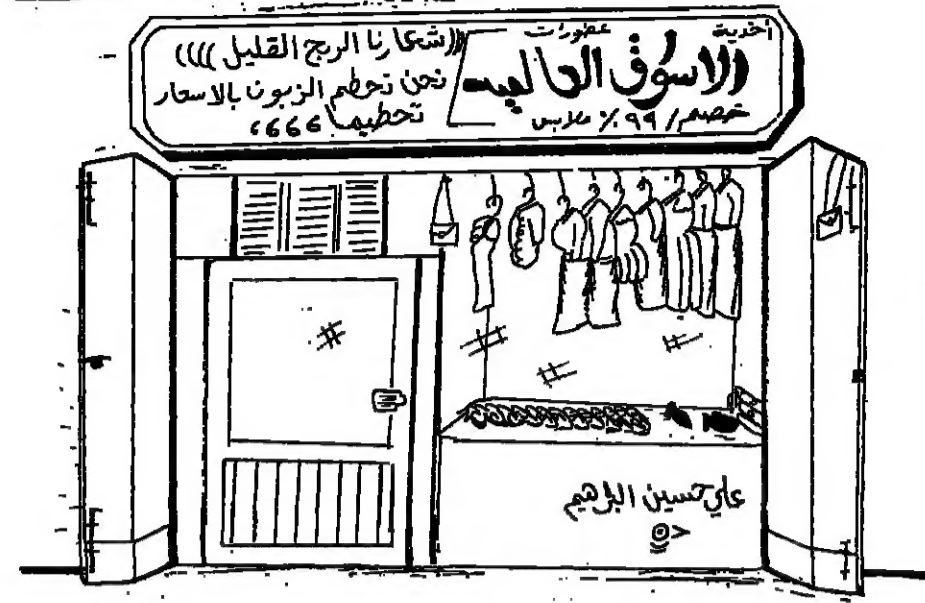 أحذية عطورات
الاسوق العالميه
خصم / ٩٩ ٪ ملابس
((شعارنا الربح القليل))))
نحن نحطم الزبون بالاسعار
تحطيما ،666
علي حسين البراهيم